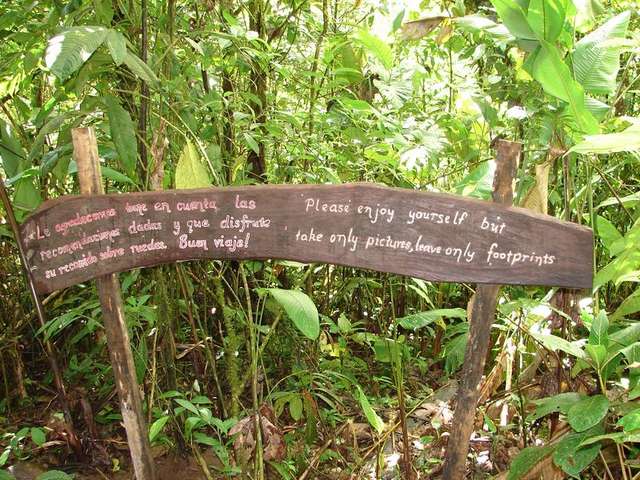 Le agradecemos tome en cuenta las
recomendaciones dadas y que disfrute
su recorrido sobre ruedas. Buen viaje!
Please enjoy yourself but
take only pictures, leave only footprints